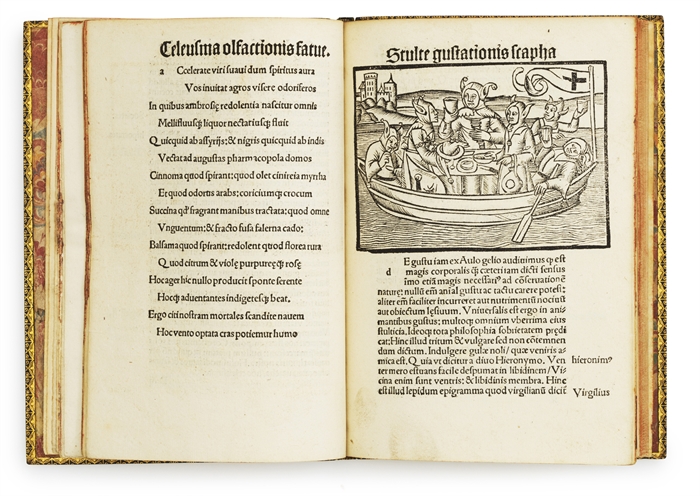 Celeusma olfactionis fatue.
a Ccelerate viri suaui dum spiritus aura
Vos inuitat agros visere odoriferos
In quibus ambrosię redolentia nascitur omnis
Mellifluusq̃ liquor nectariusq̃ fluit
Quicquid ab assyrijs: & nigris quicquid ab indis
Vectat ad augustas pharmacopola domos
Cinnoma quod spirant: quod olet cinireia myrrha
Et quod odortis arabs: coriciumq̃ crocum
Succina qď fragrant manibus tractata: quod omne
Vnguentum: & fracto fusa falerna cado:
Balsama quod spirant: redolent quod florea rura
Quod citrum & violę purpureęq̃ rosę
Hoc ager hic nullo producit sponte serente
Hocq̃ aduentantes indigetesq̃ beat.
Ergo citi nostram mortales scandite nauem
Hoc vento optata cras potiemur humo
Stulte gustationis scapha
d E gustu iam ex Aulo gelio auditimus q̃ est
magis corporalis q̃ cæteri iam dicti sensus
imo etiã magis necessari⁹ ad cõseruationẽ
naturę: nullũ em̃ anĩal gustu ac tactu carere potest:
aliter em̃ faciliter incurreret aut nutrimentũ nociuũ
aut obiectum lęsiuum. Vniuersalis est ergo in ani
mantibus gustus: multoq̃ omnium vberrima eius
stulticia. Ideoq̃ tota philosophia sobrietatem prędi
cat: Hinc illud tritum & vulgare sed non cõtemnen
dum dictum. Indulgere gulæ noli/ quæ veniris a⸗
mica est. Quia vt dicitur a diuo Hieronymo. Ven
ter mero estuans facile despumat in libidinem/ Vi
cina enim sunt ventris: & libidinis membra. Hinc
est illud lepidum epigramma quod virgilianũ dicit̃
hieronim⁹
Virgilius